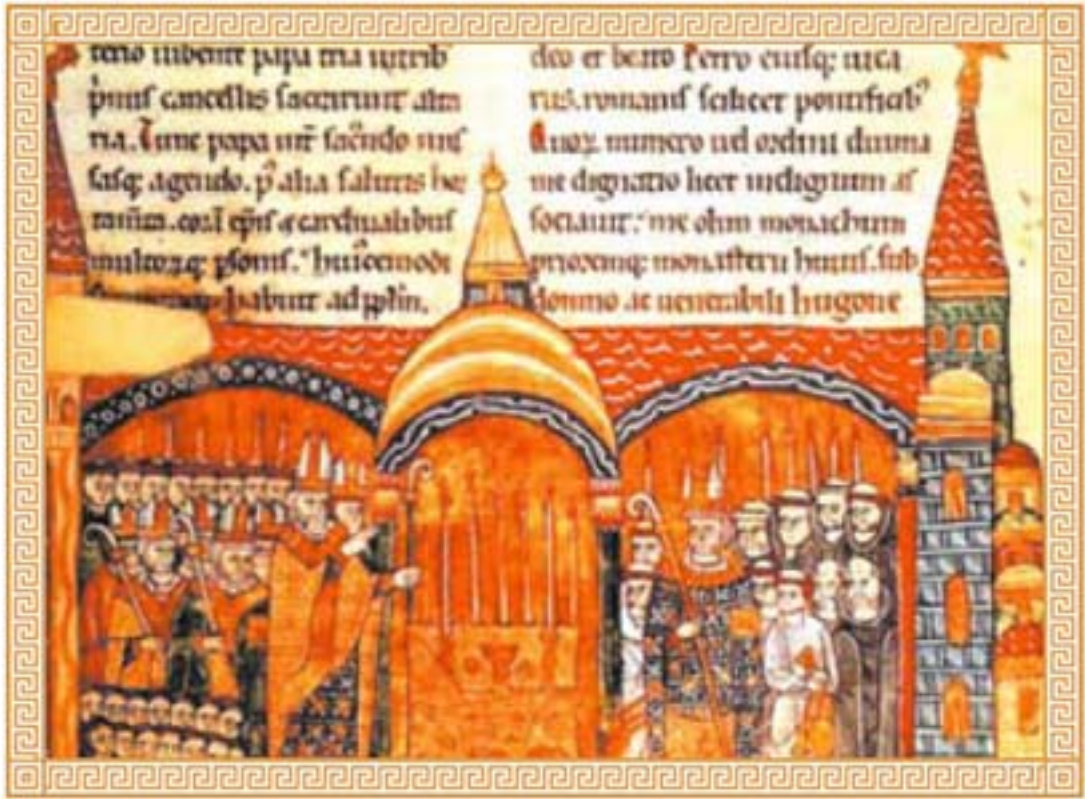 iubente papa tria in trib
primis cancellis sacrarunt alta
ria. Tunc papa int̄ sac̄ndo mis
sasq; agendo. p᾿ alia salutis
corā ep̄is & cardinalibus
psonis. huiꝰcemodi
habuit ad pplm̄.
deo et beato Petro eiusq; uica
riis. romanis scilicet pontificib᾿
Quoꝝ numero uel ordini diuina
me dignatio licet indignum as
sociauit. me olim monachum
prioremq; monasterii huius. sub
domno ac uenerabili hugone